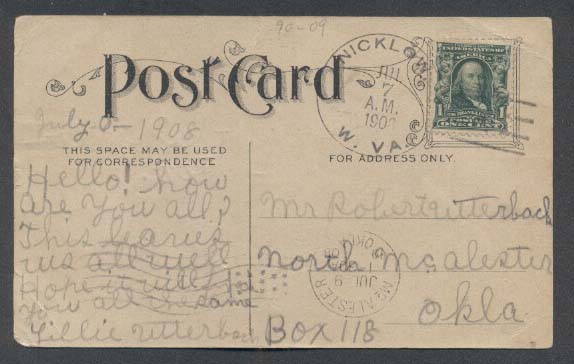 90-09
Post Card
July 6-1908
THIS SPACE MAY BE USED
FOR CORRESPONDENCE
Hello! how
are You all?
This leaves
us all well
Hope it will
You all the same
Lillie utterbach
FOR ADDRESS ONLY.
Mr Robert utterback
North McAlester
Okla
Box 118
WICKLOW
JUL
7
A.M.
W. VA.
UNITED STATES OF AMERICA
1
ONE CENT
MCALESTER
OKLA
JUL 9